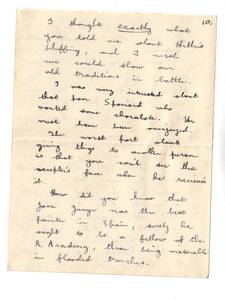 10.
I thought exactly what
you told me about Hitler's
bluffing, and I wish
we could show our
old traditions in battle.
I was very intrested about
that poor Spaniard who
wanted some chocolate. He
must have been overjoyed.
The worst part about
giving things to another person
is that you can't see the
recipient's face when he receives
it.
How did you know that
Joan Junyer was the best
painter in Spain, surely he
ought to be a fellow of the
R. Academy, than being miserable
in flooded trenches.